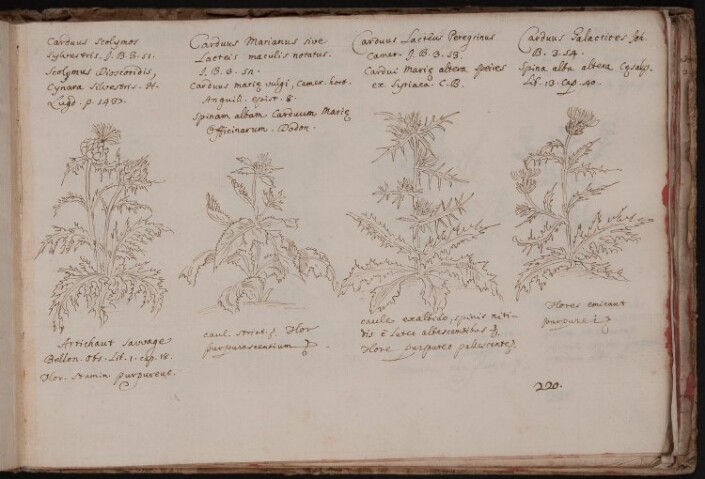 Carduus Scolymos
sylvestris. J.B. 3. 51.
Scolymus Dioscoridis,
Cynara silvestris. H.
Lugd. p. 1437.
Carduus Marianus sive
Lacteis maculis notatus.
J.B. 3. 52.
Carduus marię vulgi, camer. hort.
Anguil. epist. 8.
Spinam albam Carduum Marię
Officinarum. Dodon.
Carduus Lacteus Peregrinus
Camer. J.B. 3. 53.
Cardui Marię altera species
ex Syriaca. C.B.
Carduus Galactites Joh.
B. 3. 54.
Spina alba altera Cęsalp.
Lib. 13. Cap. 40.
Artichaut sauvage
Bellon. Obs. Lib. 1. Cap. 18.
Flor. Stamin. purpureue.
caul. striat. Flor
purpurascentium
caule exalbido, spinis niti-
dis è luteo albescentibus
Flore purpureo palescente
Flores emicant
purpurei
220.